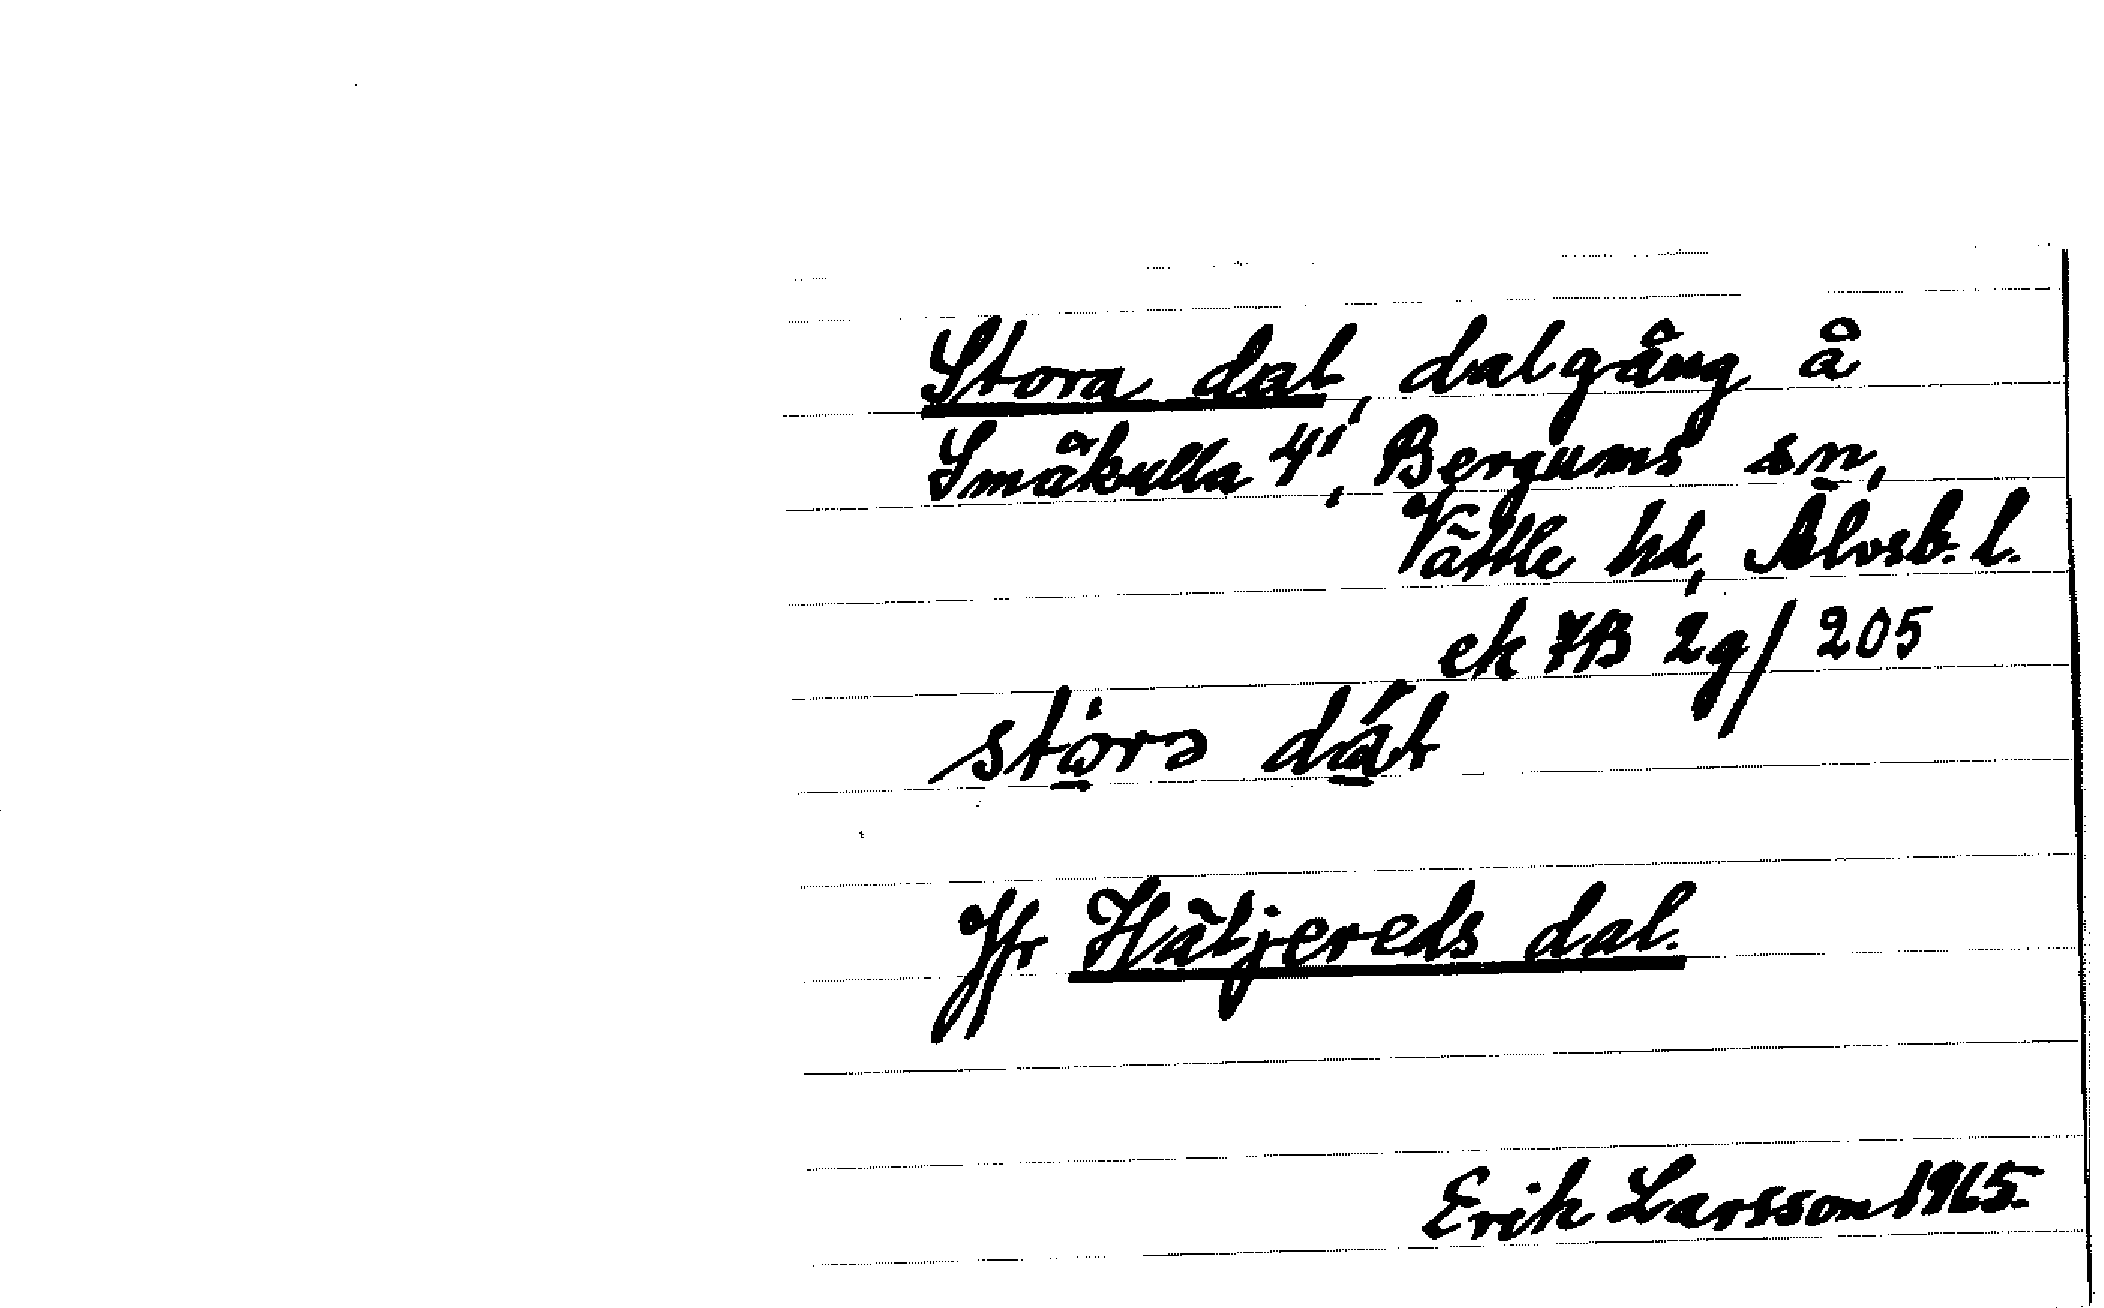 Stora dal, dalgång å
Småkulla 4¹, Bergums sn,
Vättle hd, Älvsb. l.
ek 7B 2g/205
Jfr Hältjereds dal.
Erik Larsson 1965.